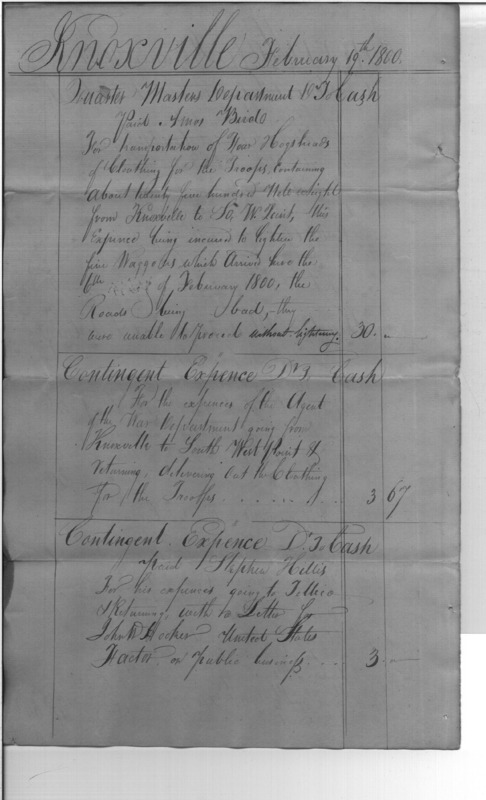 Knoxville February 19th 1800.
Quarter Masters Department Dr To Cash
Paid Amos Bird
For transportation of Four Hogsheads
of Cloathing for the Troops, Containing
about twenty five hundred Nett weight
from Knoxville to So. W. Point, this
Expence being incured to lighten the
five Waggons which Arrived here the
6th of February 1800, the
Roads being bad, they
were unable to proceed without lightning. 30. "
Contingent Expence Dr To Cash
For the expences of the Agent
of the War Department going from
Knoxville to South West Point &
returning, delivering out the Cloathing
For the Troops . . . . . . . 3 67
Contingent Expence Dr To Cash
paid Stephen Hillis
For his expences going to Tellico
& Returning with a Letter for
John W Hooker United States
Factor on public business . . . 3. "